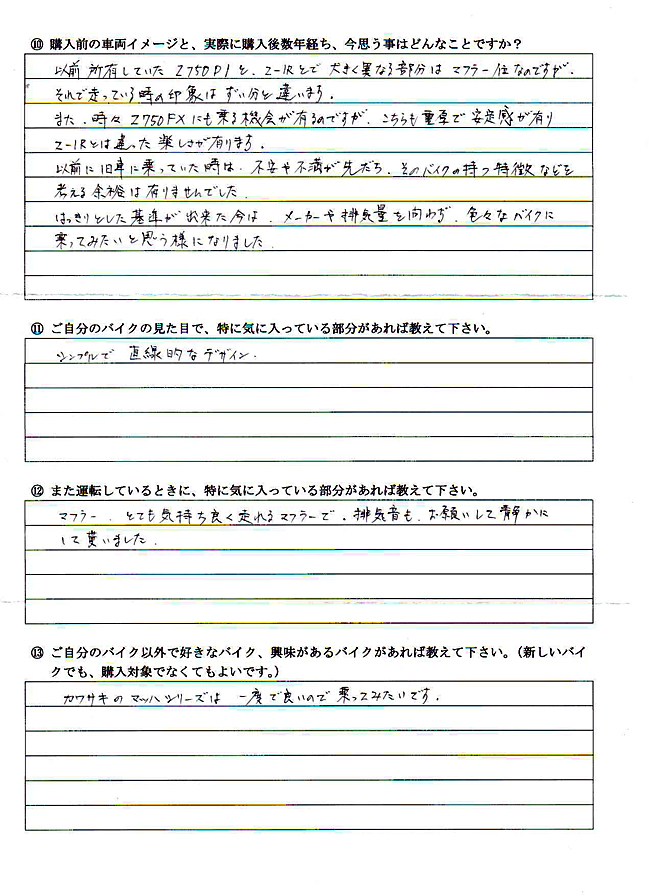 ⑩ 購入前の車両イメージと、実際に購入後数年経ち、今思う事はどんなことですか？
以前所有していたZ750D1と、Z-1Rとで大きく異なる部分はマフラー位なのですが、
それで走っている時の印象はずい分と違います。
また、時々Z750FXにも乗る機会が有るのですが、こちらも重厚で安定感が有り
Z-1Rとは違った楽しさが有ります。
以前に旧車に乗っていた時は、不安や不満が先だち、そのバイクの持つ特徴などを
考える余裕は有りませんでした。
はっきりとした基準が出来た今は、メーカーや排気量を問わず、色々なバイクに
乗ってみたいと思う様になりました。
⑪ ご自分のバイクの見た目で、特に気に入っている部分があれば教えて下さい。
シンプルで 直線的なデザイン。
⑫ また運転しているときに、特に気に入っている部分があれば教えて下さい。
マフラー、とても気持ち良く走れるマフラーで、排気音も、お願いして静かに
して貰いました。
⑬ ご自分のバイク以外で好きなバイク、興味があるバイクがあれば教えて下さい。（新しいバイ
クでも、購入対象でなくてもよいです。）
カワサキのマッハシリーズは 一度で良いので 乗ってみたいです。